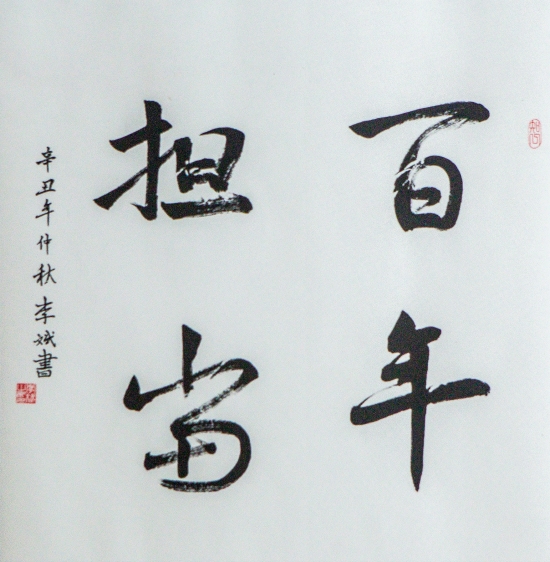 百年
担当
辛丑年仲秋李斌書